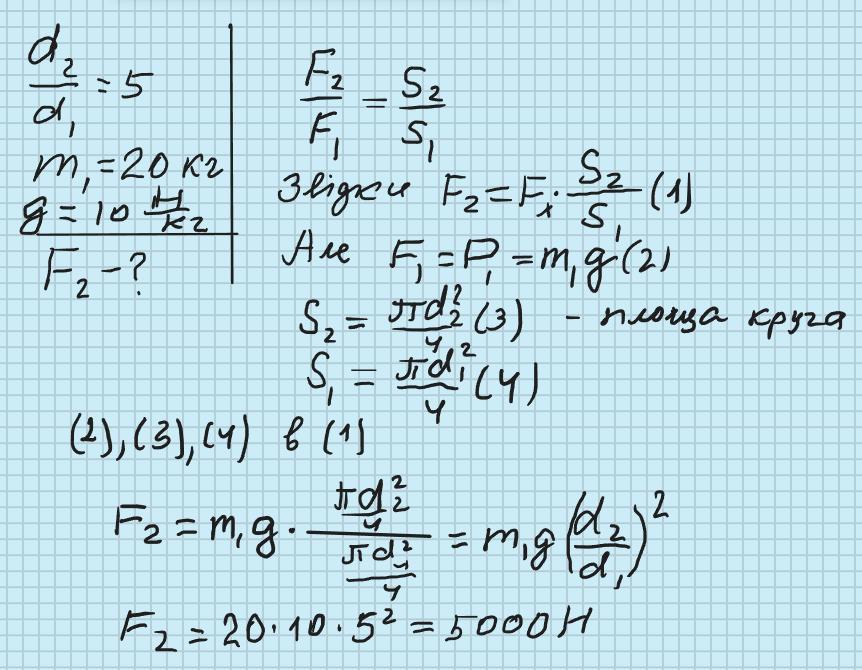 d₂/d₁ = 5
m₁ = 20 кг
g = 10 Н/кг
F₂ - ?
F₂/F₁ = S₂/S₁
Звідки F₂ = F₁ · S₂/S₁ (1)
Але F₁ = P₁ = m₁g (2)
S₂ = πd₂²/4 (3) - площа круга
S₁ = πd₁²/4 (4)
(2), (3), (4) в (1)
F₂ = m₁g · (πd₂²/4)/(πd₁²/4) = m₁g (d₂/d₁)²
F₂ = 20 · 10 · 5² = 5000 Н